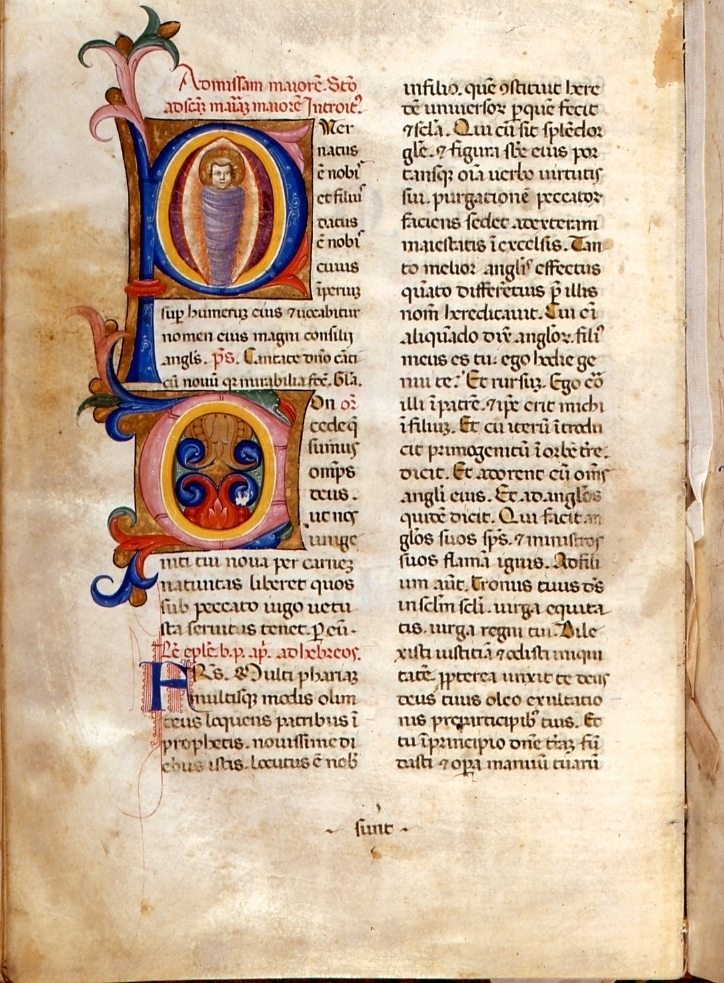 Ad missam maiorē. Stō
ad scāȝ mariāȝ maiorē Introitꝰ.
Puer
natus
ē nobꝭ
et filiuꝭ
datus
ē nobꝭ
cuius
īperiuȝ
sup̄ humeruȝ eius ⁊ uocabitur
nomen eius magni consilij
angl̄s. p̄s. Cantate dn̄o cāti
cū nouū qꝛ mirabilia fec̄. Gl̄a.
Con or̄
cede q̄
sumus
om̄ps
deus.
ut nos
unige
niti tui noua per carneȝ
natiuitas liberet quos
sub peccato iugo uetu
sta seruitus tenet. P eū.
Lc̄ ep̄le. b. p. ap̄. ad hebreos.
FRs̄. Multi phariaȝ
multisqȝ modis olim
deus loquens patribus ī
prophetis. nouissime di
ebus istis. locutus ē nob̄
in filio. quē ꝯstituit here
dē uniuersoꝝ p̱ quē fecit
⁊ scl̄a. Qui cū sit splēdor
gl̄e. ⁊ figura sb̄e eius por
tansqȝ oīa uerbo uirtutis
sui. purgationē peccatoꝝ
faciens sedet ad exteram
maiestatis ī excelsis. Tan
to melior angl̄is effectus
quāto differētius p̄ illis
nom̄ hereditauit. Cui eī
aliquādo dix̄ angloꝝ. filiꝰ
meus es tu. ego hodie ge
nui te? Et rursuȝ. Ego eō
illi ī patrē. ⁊ ip̄e erit michi
ī filiuȝ. Et cū iterū ītrodu
cit primogenitū ī orbē tr̄e.
dicit. Et adorent eū om̄s
angli eius. Et ad anglos
quidē dicit. Qui facit an
glos suos sp̄s. ⁊ ministros
suos flamā ignis. Ad fili
um aūt. Tronus tuus d̄s
in sclm̄ scl̄i. uirga equita
tis. uirga regni tui. Dile
xisti iustitiā ⁊ odisti iniqui
tatē. ꝓpterea unxit te deus
deus tuus oleo exultatio
nis pre participibꝰ tuis. Et
tu ī principio dn̄e tr̄aȝ fū
dasti ⁊ op̄a manuū tuarū
sunt